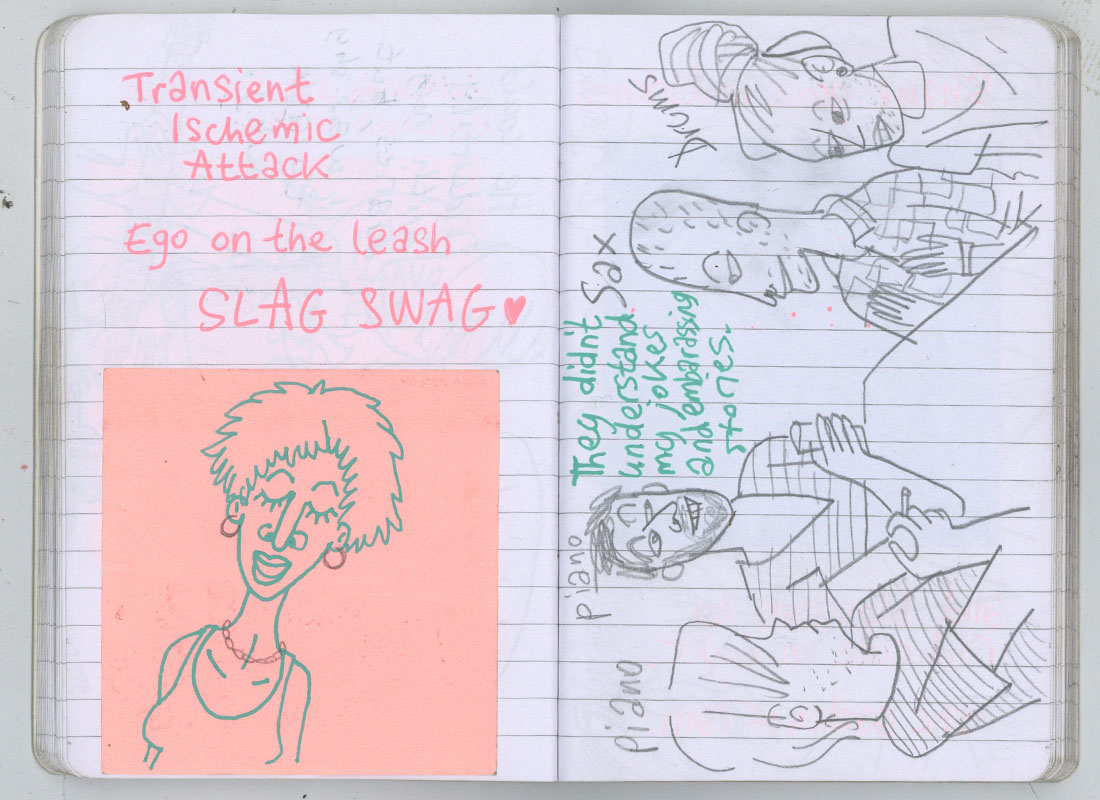 Transient
Ischemic
Attack
Ego on the leash
SLAG SWAG♥
piano
piano
They didn't
understand
my jokes
and embarassing
stories.
Sax
drums